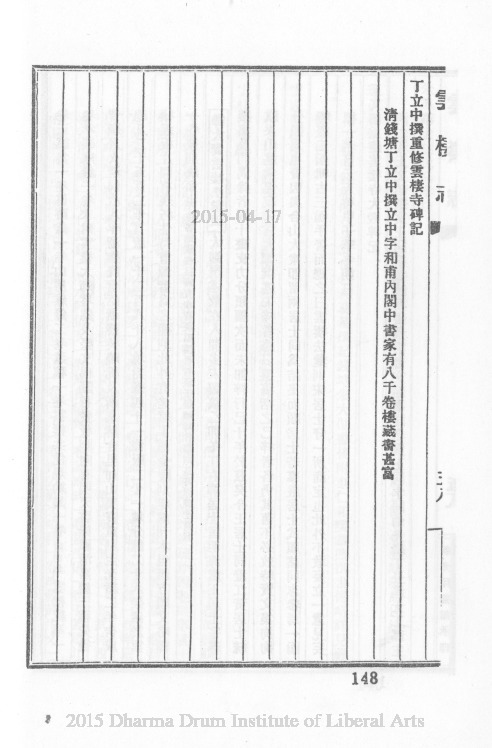 雲棲志
丁立中撰重修雲棲寺碑記
清錢塘丁立中撰立中字和甫內閣中書家有八千卷樓藏書甚富
2015-04-17
148
2015 Dharma Drum Institute of Liberal Arts